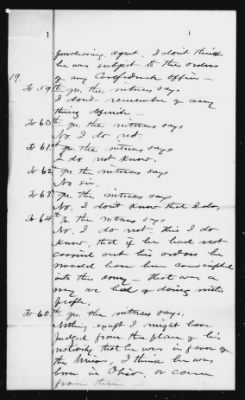 1 1
purchasing agent. I don't think
he was subject to the orders
of any Confederate officer –
19.
To 59th qu. the witness says
I don't remember of any
thing definite –
To 60th qu. the witness says
No I do not.
To 61st qu. the witness says
I do not know.
To 62d qu. the witness says
No sir.
To 63d qu. the witness says
No, I don't know that I do,
To 64th qu. the witness says
No, I do not. this I do
know, that if he had not
carried out his orders he
would have been conscripted
into the army – that was a
way we had of doing with
people.
To 65th qu. the witness says,
Nothing except I might have
judged from the place of his
nativity that he was in favor of
the Union, I think he was
born in Ohio, or came
from there